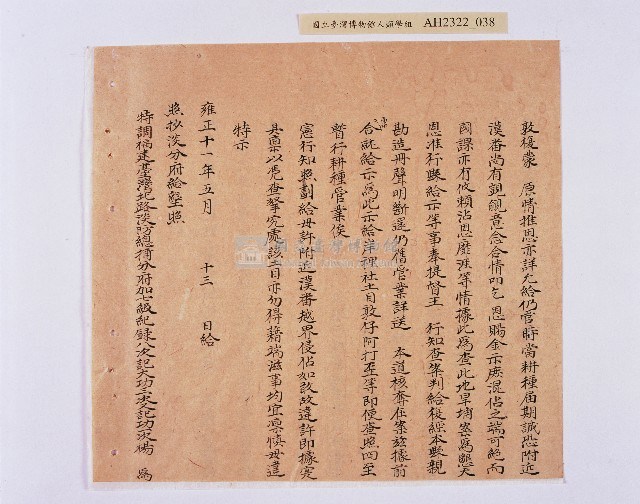 國立臺灣博物館人類學組 AH2322_038
敦復蒙 原情推恩亦詳允給仍管時當耕種届期誠恐附近
漢番尚有覬覦意念合情叩乞 恩賜金示庶混佔之端可絕而
國課亦有攸賴沾恩靡涯等情據此為查此地旱埔案為懇天
恩准行縣給示等事奉提督王 行知查案判給後經本縣親
勘造冊聲明斷還仍舊管業詳送 本道核奪在案茲據前
合就給示為此示給岸裡社土目敦仔阿打歪等即便查照四至
暫行耕種管業俟
憲行知照劃給毋許附近漢番越界侵佔如敢故違許即據實
具稟以憑查拏究處該土目亦勿得藉端滋事均宜凜慎毋違
特示
雍正十一年五月 十三 日給
照抄淡分府給墾照
特調福建臺灣北路淡防總捕分府加七級紀錄八次記大功三次又記功次楊 為